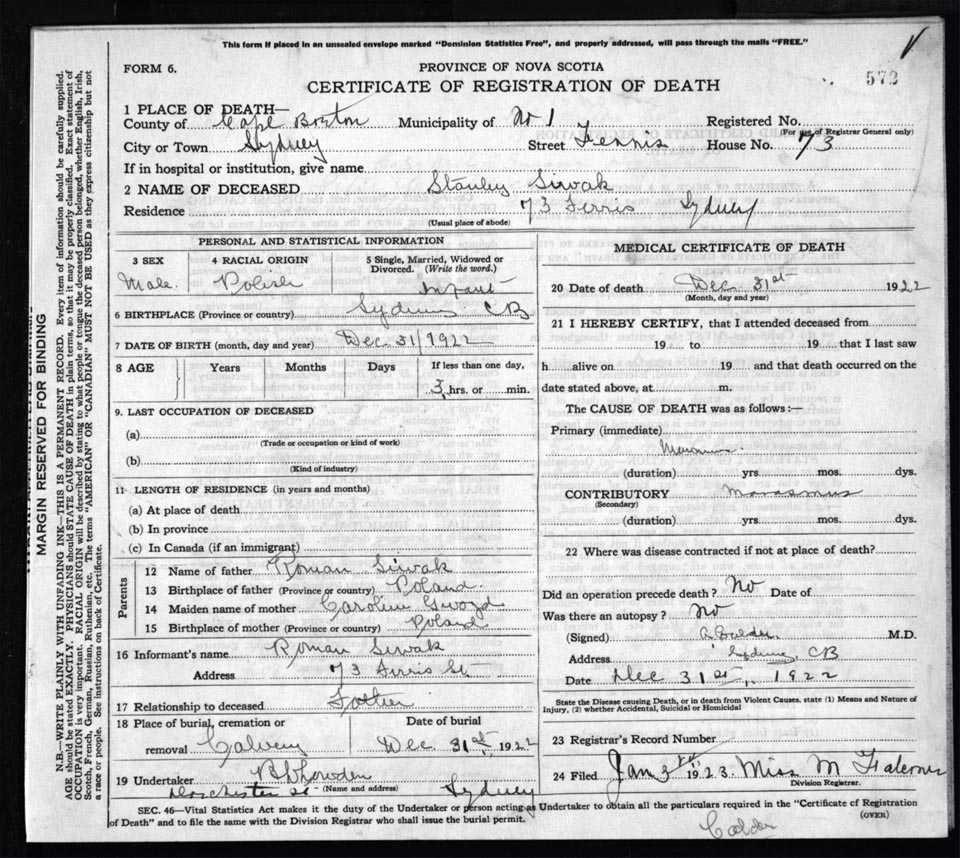 This form if placed in an unsealed envelope marked "Dominion Statistics Free", and properly addressed, will pass through the mails "FREE."
FORM 6.
PROVINCE OF NOVA SCOTIA
572
CERTIFICATE OF REGISTRATION OF DEATH
1 PLACE OF DEATH—
County of Cape Breton Municipality of No 1 Registered No.
(For use of Registrar General only)
City or Town Sydney Street Ferris House No. 73
If in hospital or institution, give name
2 NAME OF DECEASED Stanley Siwak
Residence 73 Ferris Sydney
(Usual place of abode)
PERSONAL AND STATISTICAL INFORMATION
3 SEX 4 RACIAL ORIGIN 5 Single, Married, Widowed or Divorced. (Write the word.)
Male. Polish Infant
6 BIRTHPLACE (Province or country) Sydney CB
7 DATE OF BIRTH (month, day and year) Dec 31/1922
8 AGE Years Months Days If less than one day,
3 hrs. or min.
9. LAST OCCUPATION OF DECEASED
(a)
(Trade or occupation or kind of work)
(b)
(Kind of industry)
11 LENGTH OF RESIDENCE (in years and months)
(a) At place of death
(b) In province
(c) In Canada (if an immigrant)
Parents
12 Name of father Roman Siwak
13 Birthplace of father (Province or country) Poland.
14 Maiden name of mother Caroline Gwozd
15 Birthplace of mother (Province or country) Poland
16 Informant's name Roman Siwak
Address 73 Ferris St.
17 Relationship to deceased Father
18 Place of burial, cremation or Date of burial
removal Calvery Dec 31st 1922
19 Undertaker
(Name and address)
Dorchester St Sydney
MEDICAL CERTIFICATE OF DEATH
20 Date of death Dec 31st 1922
(Month, day and year)
21 I HEREBY CERTIFY, that I attended deceased from
19 to 19 that I last saw
h alive on 19 and that death occurred on the
date stated above, at m.
The CAUSE OF DEATH was as follows:—
Primary (immediate)
(duration) yrs. mos. dys.
CONTRIBUTORY Marasmus
(Secondary)
(duration) yrs. mos. dys.
22 Where was disease contracted if not at place of death?
Did an operation precede death? No Date of
Was there an autopsy? No
(Signed) M.D.
Address Sydney, CB
Date Dec 31st, 1922
State the Disease causing Death, or in death from Violent Causes, state (1) Means and Nature of
Injury, (2) whether Accidental, Suicidal or Homicidal
23 Registrar's Record Number
24 Filed Jan 3rd 1923. Miss M Falconer
Division Registrar.
SEC. 46—Vital Statistics Act makes it the duty of the Undertaker or person acting as Undertaker to obtain all the particulars required in the "Certificate of Registration
of Death" and to file the same with the Division Registrar who shall issue the burial permit.
(OVER)
Calder
MARGIN RESERVED FOR BINDING
N.B.—WRITE PLAINLY WITH UNFADING INK—THIS IS A PERMANENT RECORD. Every item of information should be carefully supplied.
AGE should be stated EXACTLY. PHYSICIANS should STATE CAUSE OF DEATH in plain terms, so that it may be properly classified. Exact statement of
OCCUPATION is very important. RACIAL ORIGIN will be described by stating to what people or tongue the deceased person belonged, whether English, Irish,
Scotch, French, German, Russian, Ruthenian, etc. The terms "AMERICAN" or "CANADIAN" MUST NOT BE USED as they express citizenship but not
a race or people. See instructions on back of Certificate.